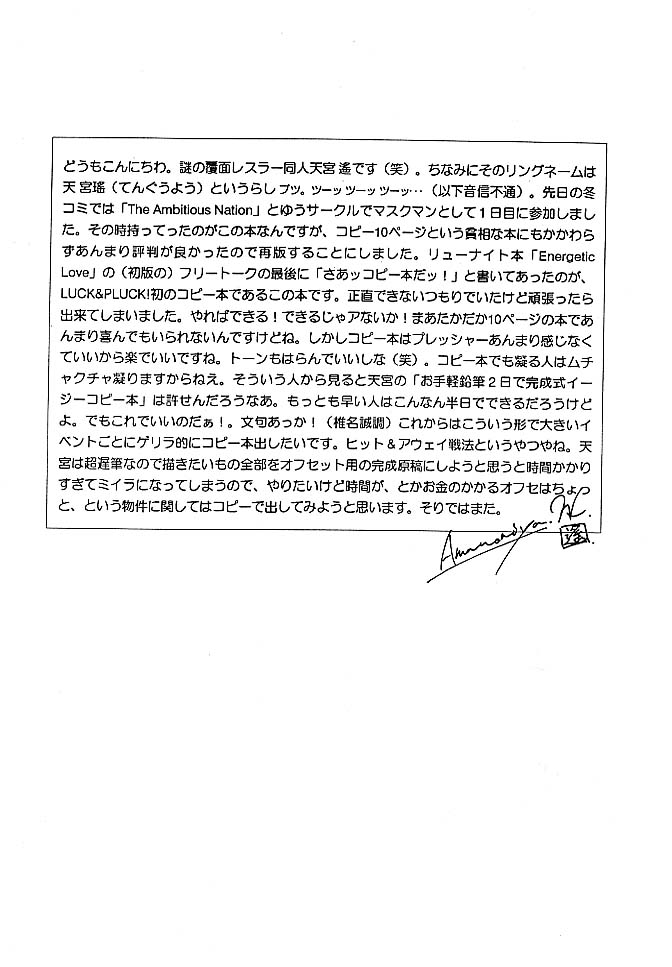 どうもこんにちわ。謎の覆面レスラー同人天宮 遙です（笑）。ちなみにそのリングネームは
天 宮瑤（てんぐうよう）というらし プツ。ツーッ ツーッ ツーッ…（以下音信不通）。先日の冬
コミでは「The Ambitious Nation」とゆうサークルでマスクマンとして１日目に参加しまし
た。その時持ってったのがこの本なんですが、コピー10ページという貧相な本にもかかわら
ずあんまり評判が良かったので再版することにしました。リューナイト本「Energetic
Love」の（初版の）フリートークの最後に「さあッコピー本だッ！」と書いてあったのが、
LUCK&PLUCK!初のコピー本であるこの本です。正直できないつもりでいたけど頑張ったら
出来てしまいました。やればできる！できるじゃアないか！まあたかだか10ページの本であ
んまり喜んでもいられないんですけどね。しかしコピー本はプレッシャーあんまり感じなく
ていいから楽でいいですね。トーンもはらんでいいしな（笑）。コピー本でも凝る人はムチ
ャクチャ凝りますからねえ。そういう人から見ると天宮の「お手軽鉛筆２日で完成式イー
ジーコピー本」は許せんだろうなあ。もっとも早い人はこんなん半日でできるだろうけど
よ。でもこれでいいのだぁ！。文句あっか！（椎名誠調）これからはこういう形で大きいイ
ベントごとにゲリラ的にコピー本出したいです。ヒット＆アウェイ戦法というやつやね。天
宮は超遅筆なので描きたいもの全部をオフセット用の完成原稿にしようと思うと時間かかり
すぎてミイラになってしまうので、やりたいけど時間が、とかお金のかかるオフセはちょっ
と、という物件に関してはコピーで出してみようと思います。そりではまた。